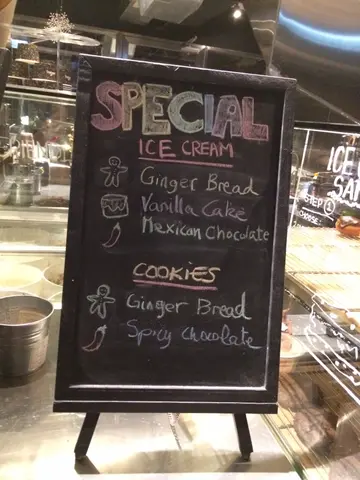 SPECIAL
ICE CREAM
Ginger Bread
Vanilla Cake
Mexican Chocolate
COOKIES
Ginger Bread
Spicy chocolate
ICE
STEP 1
CHOOSE